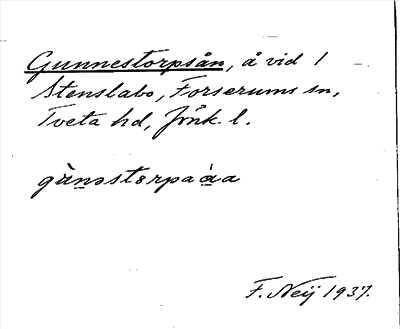 Gunnestorpsån, å vid 1
Stenslabo, Forserums sn,
Tveta hd, Jönk. l.
gùnəstorpaàa
F. Neij 1937.